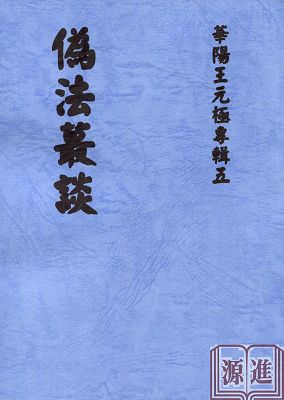 華陽王元極專輯五
偽法叢談
進源